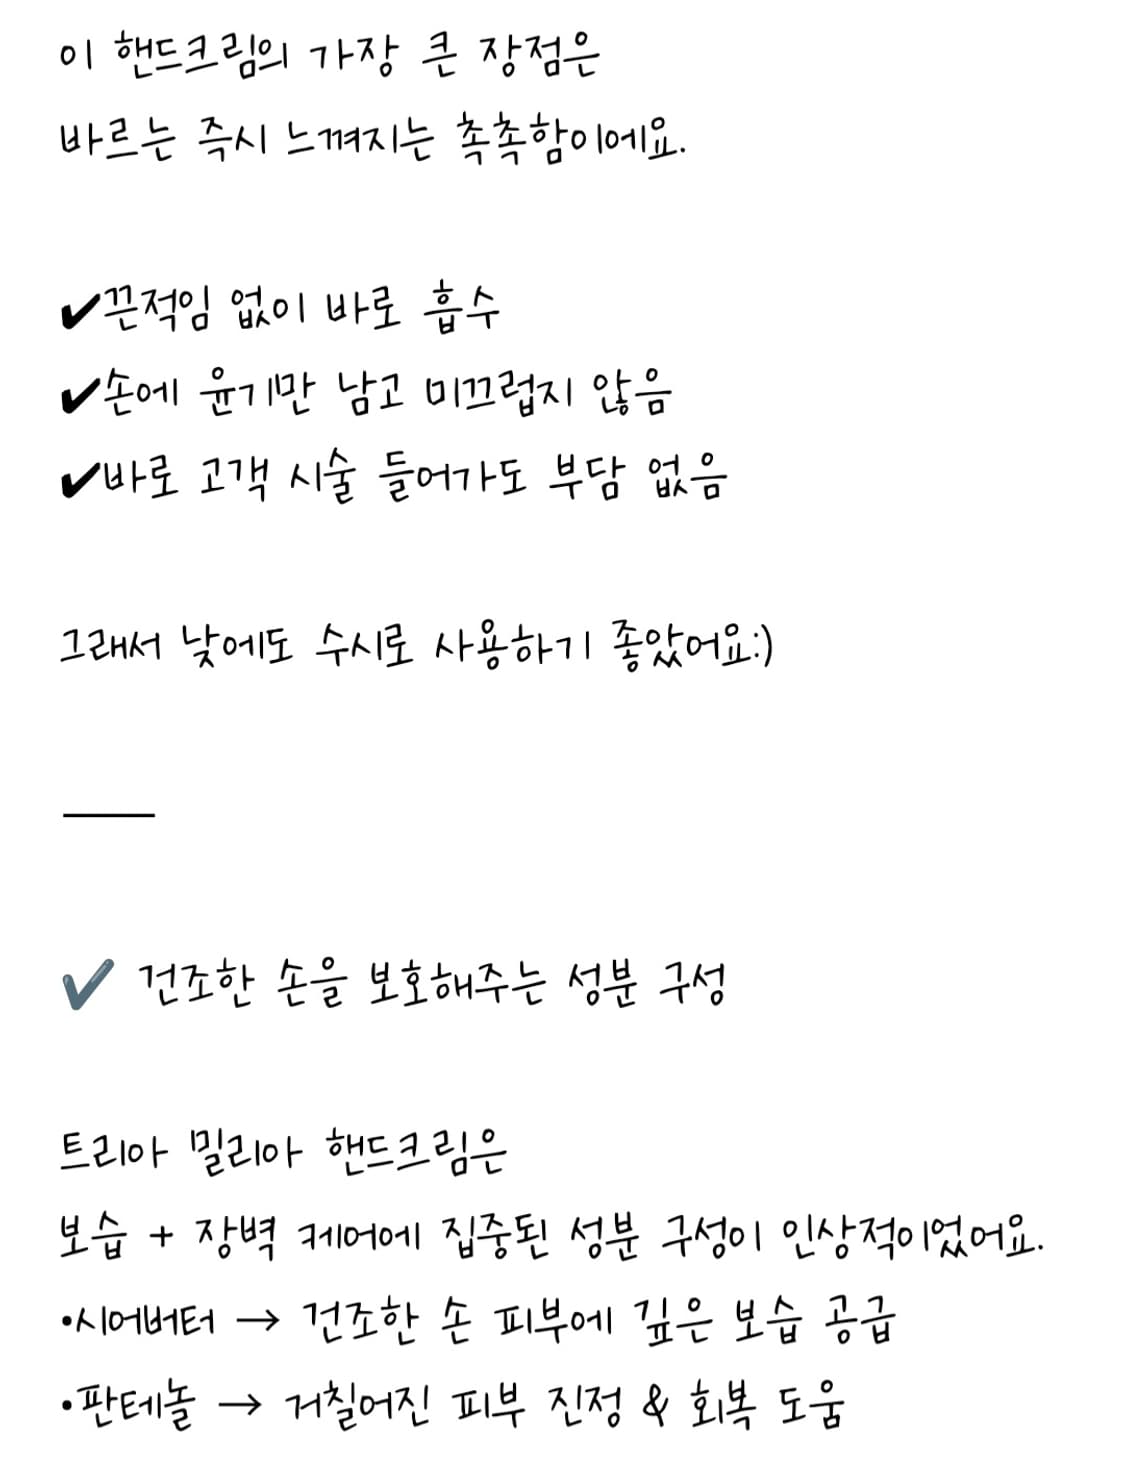 이 핸드크림의 가장 큰 장점은
바르는 즉시 느껴지는 촉촉함이에요.
✔끈적임 없이 바로 흡수
✔손에 윤기만 남고 미끄럽지 않음
✔바로 고객 시술 들어가도 부담 없음
그래서 낮에도 수시로 사용하기 좋았어요:)
✔ 건조한 손을 보호해주는 성분 구성
트리아 밀리아 핸드크림은
보습 + 장벽 케어에 집중된 성분 구성이 인상적이었어요.
•시어버터 → 건조한 손 피부에 깊은 보습 공급
•판테놀 → 거칠어진 피부 진정 & 회복 도움